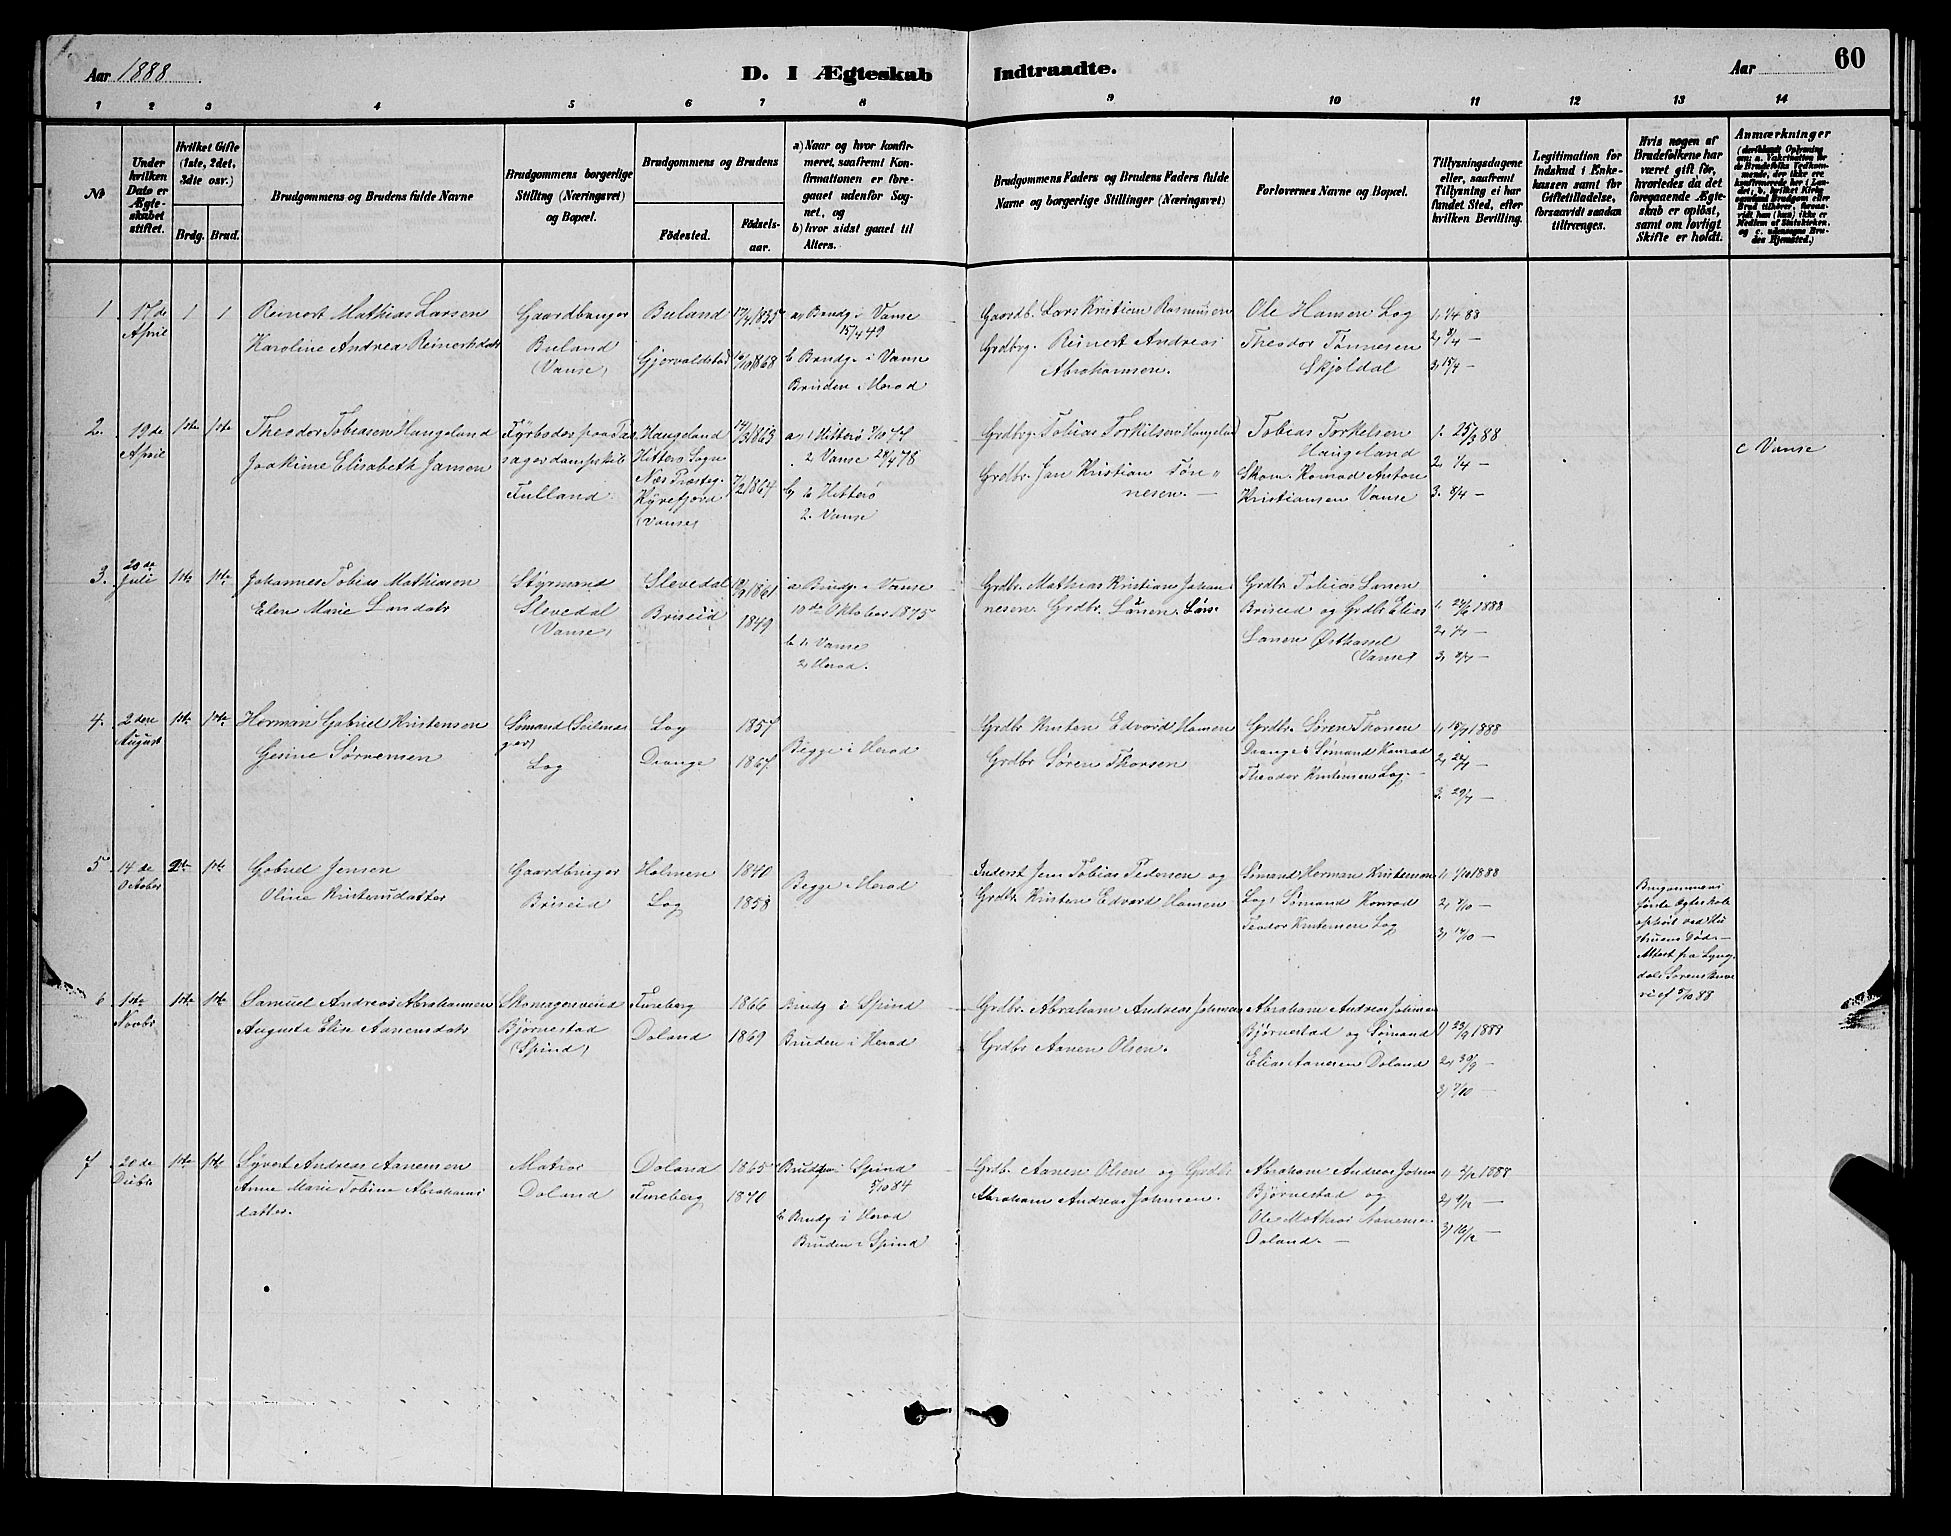 Aar 1888
D. I Ægteskab Indtraadte.
Aar
60
1 2 3 4 5 6 7 8 9 10 11 12 13 14
№
Under hvilken Dato er Ægteskabet stiftet.
Hvilket Gifte (1ste, 2det, 3die osv.)
Brdg. Brud.
Brudgommens og Brudens fulde Navne
Brudgommens borgerlige Stilling (Næringsvei) og Bopæl.
Brudgommens og Brudens
Födested.
Födsels-aar.
a) Naar og hvor konfirmeret, saafremt Konfirmationen er foregaaet udenfor Sognet, og
b) hvor sidst gaaet til Alters.
Brudgommens Faders og Brudens Faders fulde Navne og borgerlige Stillinger (Næringsvei)
Forlovernes Navne og Bopæl.
Tillysningsdagene eller, saafremt Tillysning ei har fundet Sted, efter hvilken Bevilling.
Legitimation for Indskud i Enkekassen samt for Giftetilladelse, forsaavidt saadan tiltrænges.
Hvis nogen af Brudefolkene har været gift för, hvorledes da det foregaaende Ægteskab er oplöst, samt om lovligt Skifte er holdt.
Anmærkninger
1 17de April 1 1
Reinert Mathias Larsen
Karoline Andrea Reinertsdatr
Gaardbruger
Buland
(Vanse)
Buland 17/4 1835
Gjervoldstad 10/10 1868
a, Brudg i Vanse
15/4 49
b Brudg. i Vanse
Bruden Herad
Gaardb. Lars Kristian Rasmusen
Grdbrg. Reinert Andreas
Abrahamsen.
Ole Hansen Log
Theodor Tønnesen
Skjoldal
1, 1/4 88
2, 8/4 —
3, 15/4 —
2. 19de April 1ste 1ste
Theodor Tobiasen Haugeland
Joakime Elisabeth Jansen
Fyrbøder paa Pas
sagerdampskib
Fulland
Haugeland
Hitterø Sogn
Næs Præsteg.
Kyrefjord
(Vanse)
14/3 1863
7/2 1864
a, 1 Hitterø
2 Vanse 28/4 78
b, 1. Hitterø
2. Vanse
Grdbrg. Tobias Torkilsen Haugeland
Grdbr. Jan Kristian Tøn-
nesen. —
Tobias Torkelsen
Haugeland
Skom. Konrad Anton
Kristiansen Vanse
1. 25/3 88
2, 1/4 —
3. 8/4 —
c Vanse
3. 20de Juli 1ste 1ste
Johannes Tobias Mathiasen
Elen Marie Larsdatr
Styrmand
Slevedal
(Vanse)
Slevedal 1861
Briseid 1849
a Brudg. i Vanse
10de Oktober 1875
b 1, Vanse
2, Herad.
Grdbr. Mathias Kristian Johan
nesen. Grdbr. Larsen. Lars
Grdbr Tobias Larsen
Briseid og Grdbr Elias
Larsen Østhassel
(Vanse)
1. 24/6 1888
2, 1/7 —
3, 8/7 —
4. 2den August 1ste 1ste
Herman Gabriel Kristensen
Gesine Sørensen
Sømand (Seilma
ger)
Log
Log 1857
Drange 1867
Begge i Herad
Grdbr Kristen Edvard Hansen
Grdbr Søren Thorsen
Grdbr. Søren Thorsen
Drange & Sømand Konrad
Theodor Kristensen Log.
1, 15/7 1888
2, 22/7 —
3. 29/7 —
5 14de October 2de 1ste
Gabriel Jensen
Oline Kristensdatter
Gaardbruger
Briseid
Holmen 1840
Log 1858
Begge i Herad
Inderst Jens Tobias Pedersen og
Grdbr. Kristen Edvard Hansen
Sømand Herman Kristensen
Log, Sømand Konrad
Teodor Kristensen Log
1, 1/10 1888
2, 7/10 —
3, 14/10 —
Brugommens
første Ægteskab
ophört ved Hu
struens Død. —
Attest fra Lyng
dals Sorenskrive
ri af 5/10 88
6 1ste Novbr 1ste 1ste
Samuel Andreas Abrahamsen
Augusta Elise Aanensdatr
Skomagersvend
Bjørnestad
(Spind)
Fureberg 1866
Doland 1869
Brudg i Spind
Bruden i Herad
Grdbr. Abraham Andreas Johnsen
Grdbr Aanen Olsen.
Abraham Andreas Johnsen
Bjørnestad og Sømand
Elias Aanesen Doland
1) 23/9 1888
2, 30/9 —
3, 7/10 —
7 20de Decbr 1ste 1ste
Syvert Andreas Aanensen
Anne Marie Tobine Abrahams
datter.
Matros
Doland
Doland 1865
Fureberg 1870
Brudgn i Spind
5/10 84
b Brudg i Herad
Bruden i Spind
Grdb. Aanen Olsen og Grdbr
Abraham Andreas Johnsen.
Abraham Andreas Johns
Bjørnestad og
Ole Mathias Aanense
Doland. —
1, 2/12 1888
2, 9/12 —
3, 16/12 —